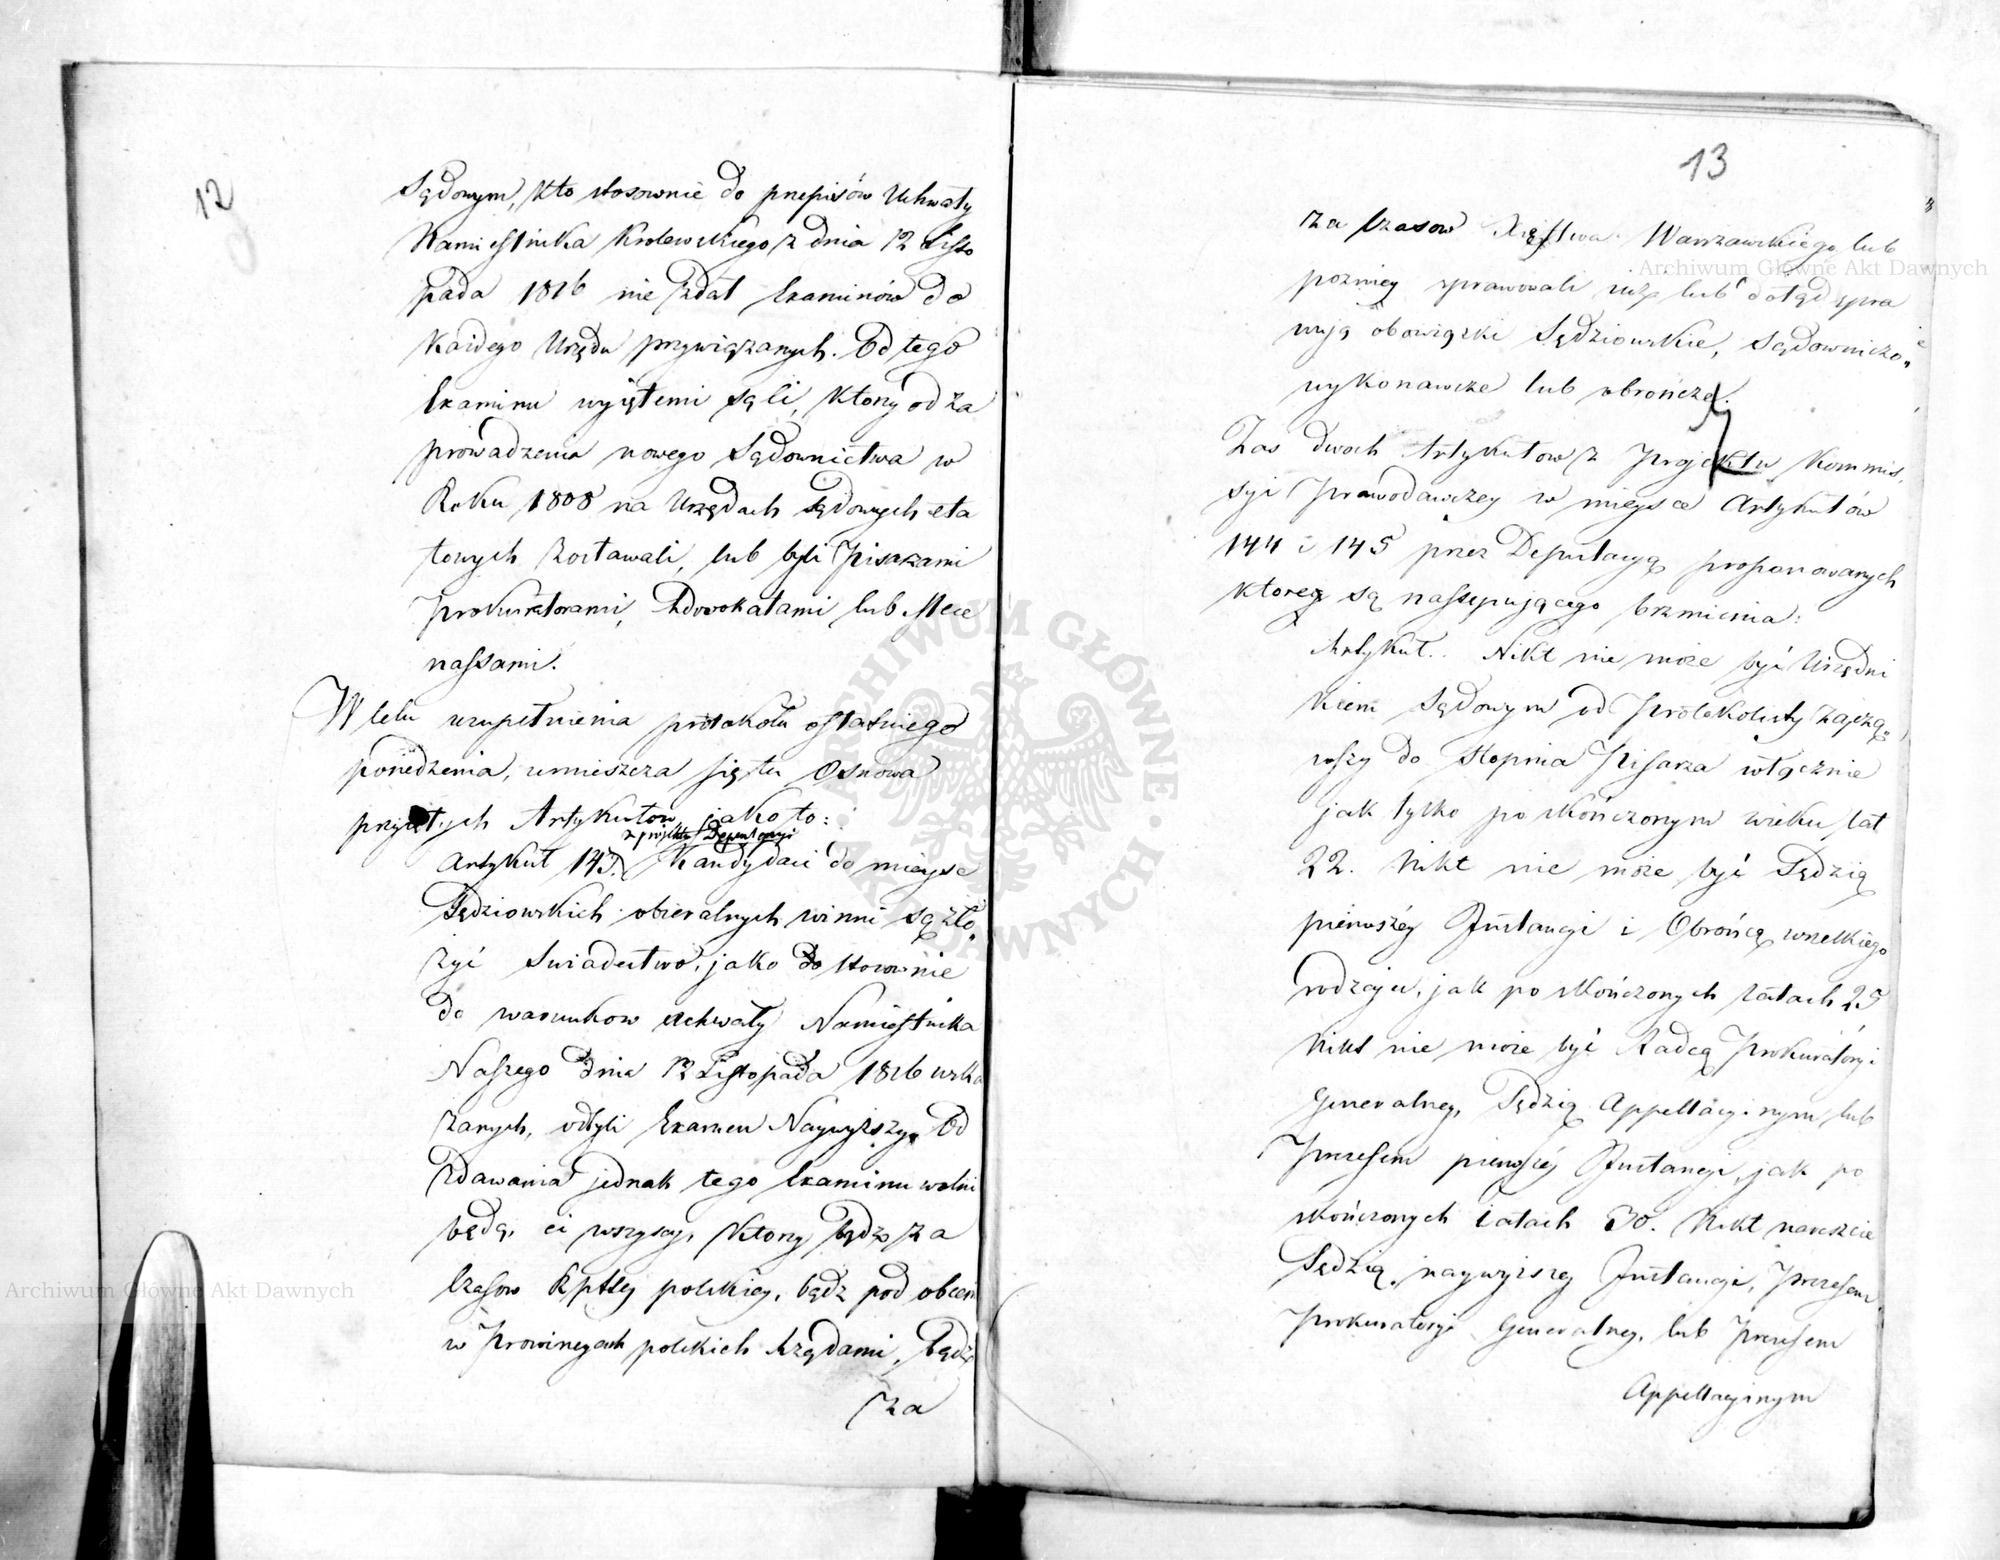 12
Sądowym, kto stosownie do przepisów Uchwały
Namiestnika Krolewskiego z dnia 12 Listo
pada 1816 nie zdał Examinów do
Każdego Urzędu przywiązanych. Od tego
Examinu wyiętemi są ci, którzy od za
prowadzenia nowego Sądownictwa w
Roku 1808 na Urzędach sądowych eta
towych zostawali, lub byli Pisarzami
Prokuratorami, Adwokatami lub Mece
nassami.
W celu uzupełnienia protokółu ostatniego
posiedzenia, umieszcza się tu Osnowa
przyiętych Artykułów, jako to:
z projektu Deputacyi
Artykuł 143. Kandydaci do mieysc
Sędziowskich obieralnych winni są zło„
żyć Swiadectwo, jako stosownie
do warunkow uchwały Namiestnika
Naszego dnia 12 Listopada 1816 wska
zanych, odbyli Examen Naywyższy. Od
zdawania jednak tego Examinu wolni
będą, ci wszyscy, Ktorzy bądz za
Czasow Rpltey polskiey, bądz pod obcemi
w Prowincyach polskich Rządami, bądz
za
13
za Czasow Xięstwa Warszawskiego, lub
pozniey sprawowali iuż lub dotąd spra
wuią obowiązki Sędziowskie, Sądowniczo„
wykonawcze lub obrończe.
Zas dwoch Artykułow z Projektu Kommis„
syi Prawodawczey w mieysce Artykułów
144 i 145 przez Deputacyą proponowanych
ktore są następującego brzmienia:
Artykuł.. Nikt nie może być Urzędni
kiem Sądowym od Protokolisty zaczą„
wszy do Stopnia Pisarza włącznie
jak tylko po skończonym wieku lat
22. Nikt nie może być Sędzią
pierwszéy Instancyi i Obrońcą wszelkiego
rodzaju, jak po skończonych latach 25
Nikt nie może być Radcą Prokuratoryi
Generalney, Sędzią Appellacyinym lub
Prezesem pierwszéy Instancyi, jak po
skończonych latach 30. Nikt nareszcie
Sędzią naywyższey Instancyi, Prezesem
Prokuratoryi Generalney, lub Prezesem
Appellacyinym
Archiwum Główne Akt Dawnych
Archiwum Główne Akt Dawnych
ARCHIWUM GŁÓWNE AKT DAWNYCH